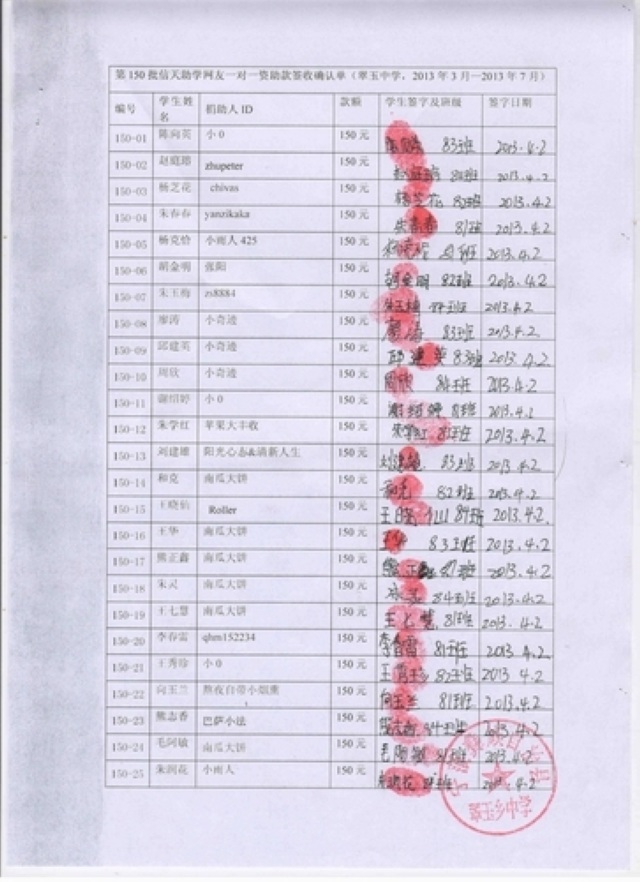 第150批信天助学网友一对一资助款签收确认单（翠玉中学，2013年3月—2013年7月）
编号 学生姓名 捐助人ID 款额 学生签字及班级 签字日期
150-01 陈向英 小0 150元 83班 2013.4.2
150-02 赵庭璐 zhupeter 150元 2013.4.2
150-03 杨芝花 chivas 150元 杨芝花 82班 2013.4.2
150-04 朱春春 yanzikaka 150元 朱春春 81班 2013.4.2
150-05 杨克恰 小雨人425 150元 2013.4.2
150-06 胡金明 张阳 150元 胡金明 82班 2013.4.2
150-07 朱玉梅 zs8884 150元 朱玉梅 2013.4.2
150-08 廖涛 小奇迹 150元 廖涛 83班 2013.4.2
150-09 邱建英 小奇迹 150元 邱建英 83班 2013.4.2
150-10 周欣 小奇迹 150元 周欣 84班 2013.4.2
150-11 谢绍婷 小0 150元 谢绍婷 81班 2013.4.2
150-12 朱学红 苹果大丰收 150元 朱学红 81班 2013.4.2
150-13 刘建雄 阳光心态&清新人生 150元 83班 2013.4.2
150-14 和克 南瓜大饼 150元 和克 82班 2013.4.2
150-15 王晓仙 Roller 150元 王晓仙 84班 2013.4.2
150-16 王华 南瓜大饼 150元 王华 83班 2013.4.2
150-17 熊正鑫 南瓜大饼 150元 81班 2013.4.2
150-18 朱灵 南瓜大饼 150元 84班 2013.4.2
150-19 王七慧 南瓜大饼 150元 王七慧 81班 2013.4.2
150-20 李春雷 qhm152234 150元 李春雷 81班 2013.4.2
150-21 王秀珍 小0 150元 82班 2013.4.2
150-22 向玉兰 熬夜自带小烟熏 150元 向玉兰 81班 2013.4.2
150-23 熊志香 巴萨小法 150元 熊志香 84班 2013.4.2
150-24 毛阿敏 南瓜大饼 150元 毛阿敏 81班 2013.4.2
150-25 朱润花 小雨人 150元 朱润花 2013.4.2
翠玉乡中学